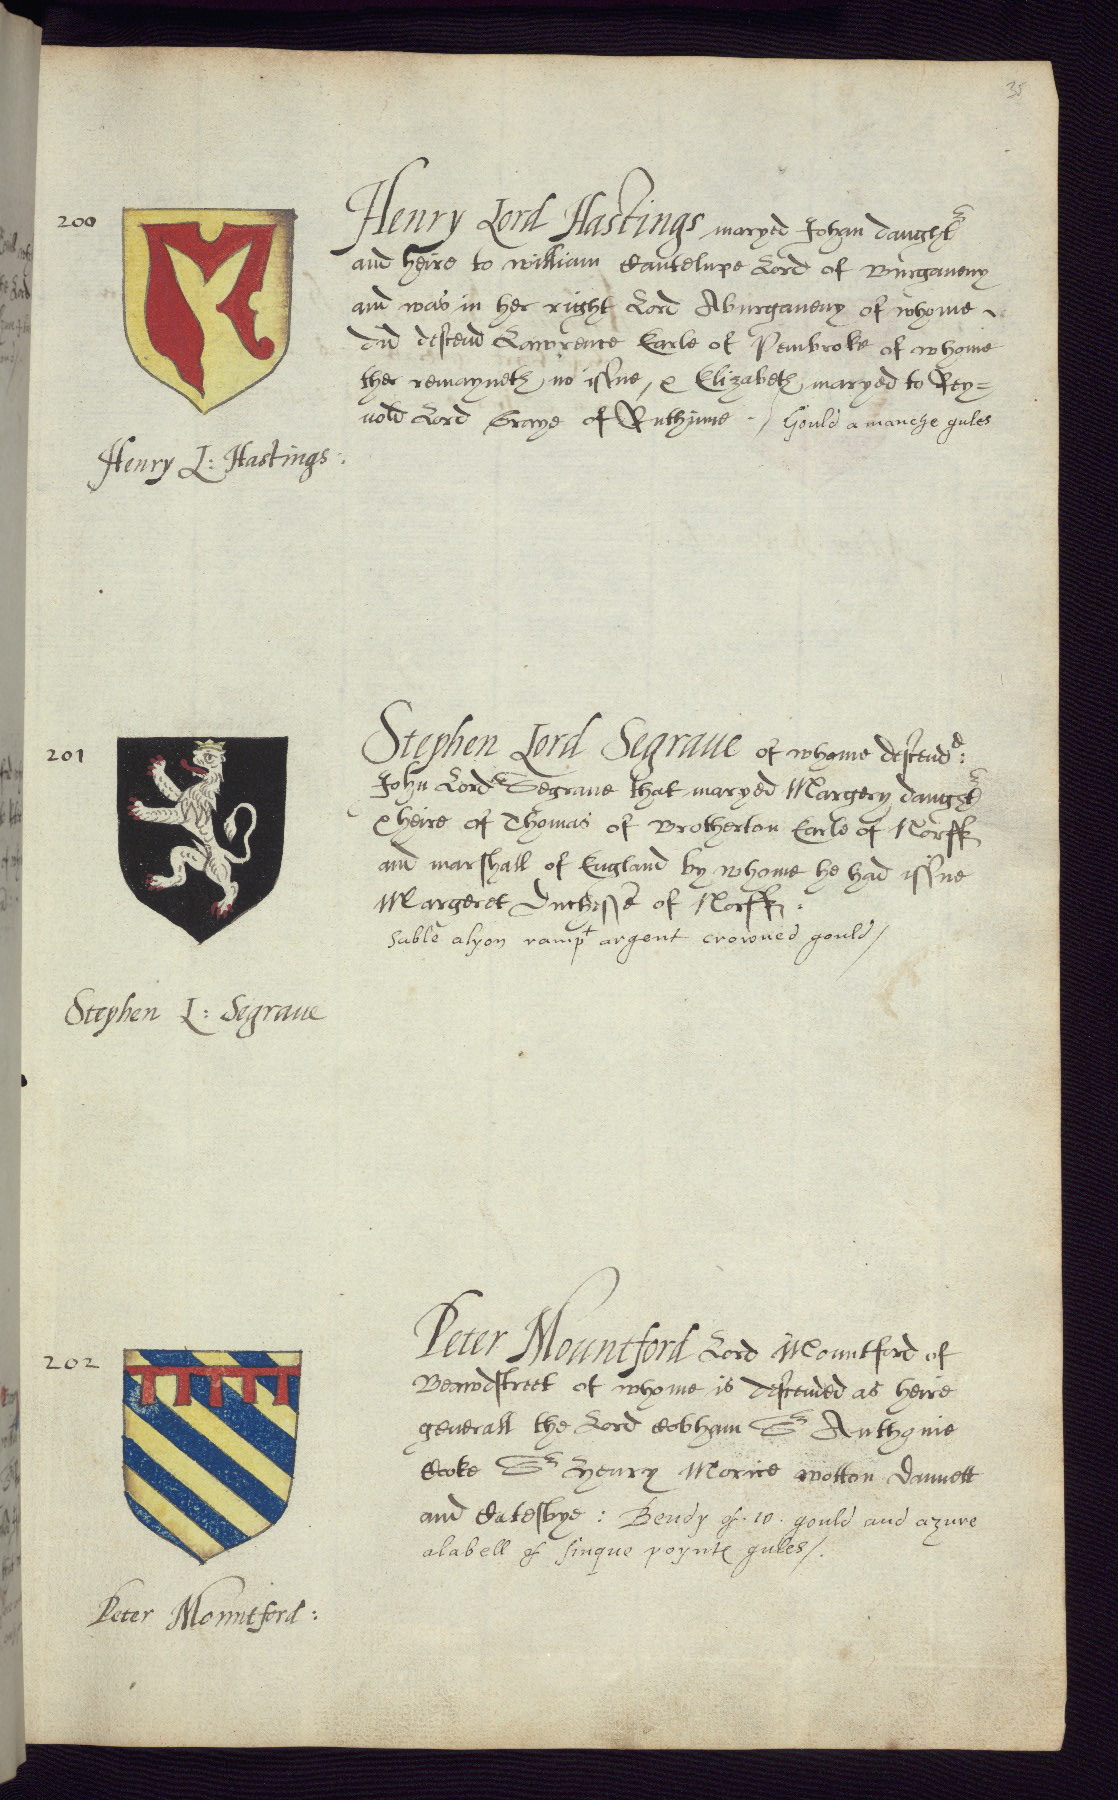 35
200
Henry Lord Hastings maryed Johan daught^r
and heire to william Cantelupe Lord of Burgaueny
and was in her right Lord Aburgaueny of whome
did descend Lawrence Earle of Pembroke of whome
ther remayneth no issue, & Elizabeth maryed to Rey=
nold Lord Graye of Ruthinne / Gould a manche gules
Henry L: Hastings:
201
Stephen Lord Segraue of whome descend^e:
John Lord Segraue that maryed Margery daught^r
& heire of Thomas of Brotherton Earle of Norff
and marshall of England by whome he had issue
Margeret Duchesse of Norff:
Sable alyon ramp^t argent crowned gould/
Stephen L: Segraue
202
Peter Mountford Lord Mountford of
Beawdstreet of whome is descended as heire
generall the Lord Cobham S^r Anthonie
Cooke S^r Henry Morice wotton Dannett
and Catesbye: Bendy of .10. gould and azure
alabell of sinque poynts gules/.
Peter Mountford: